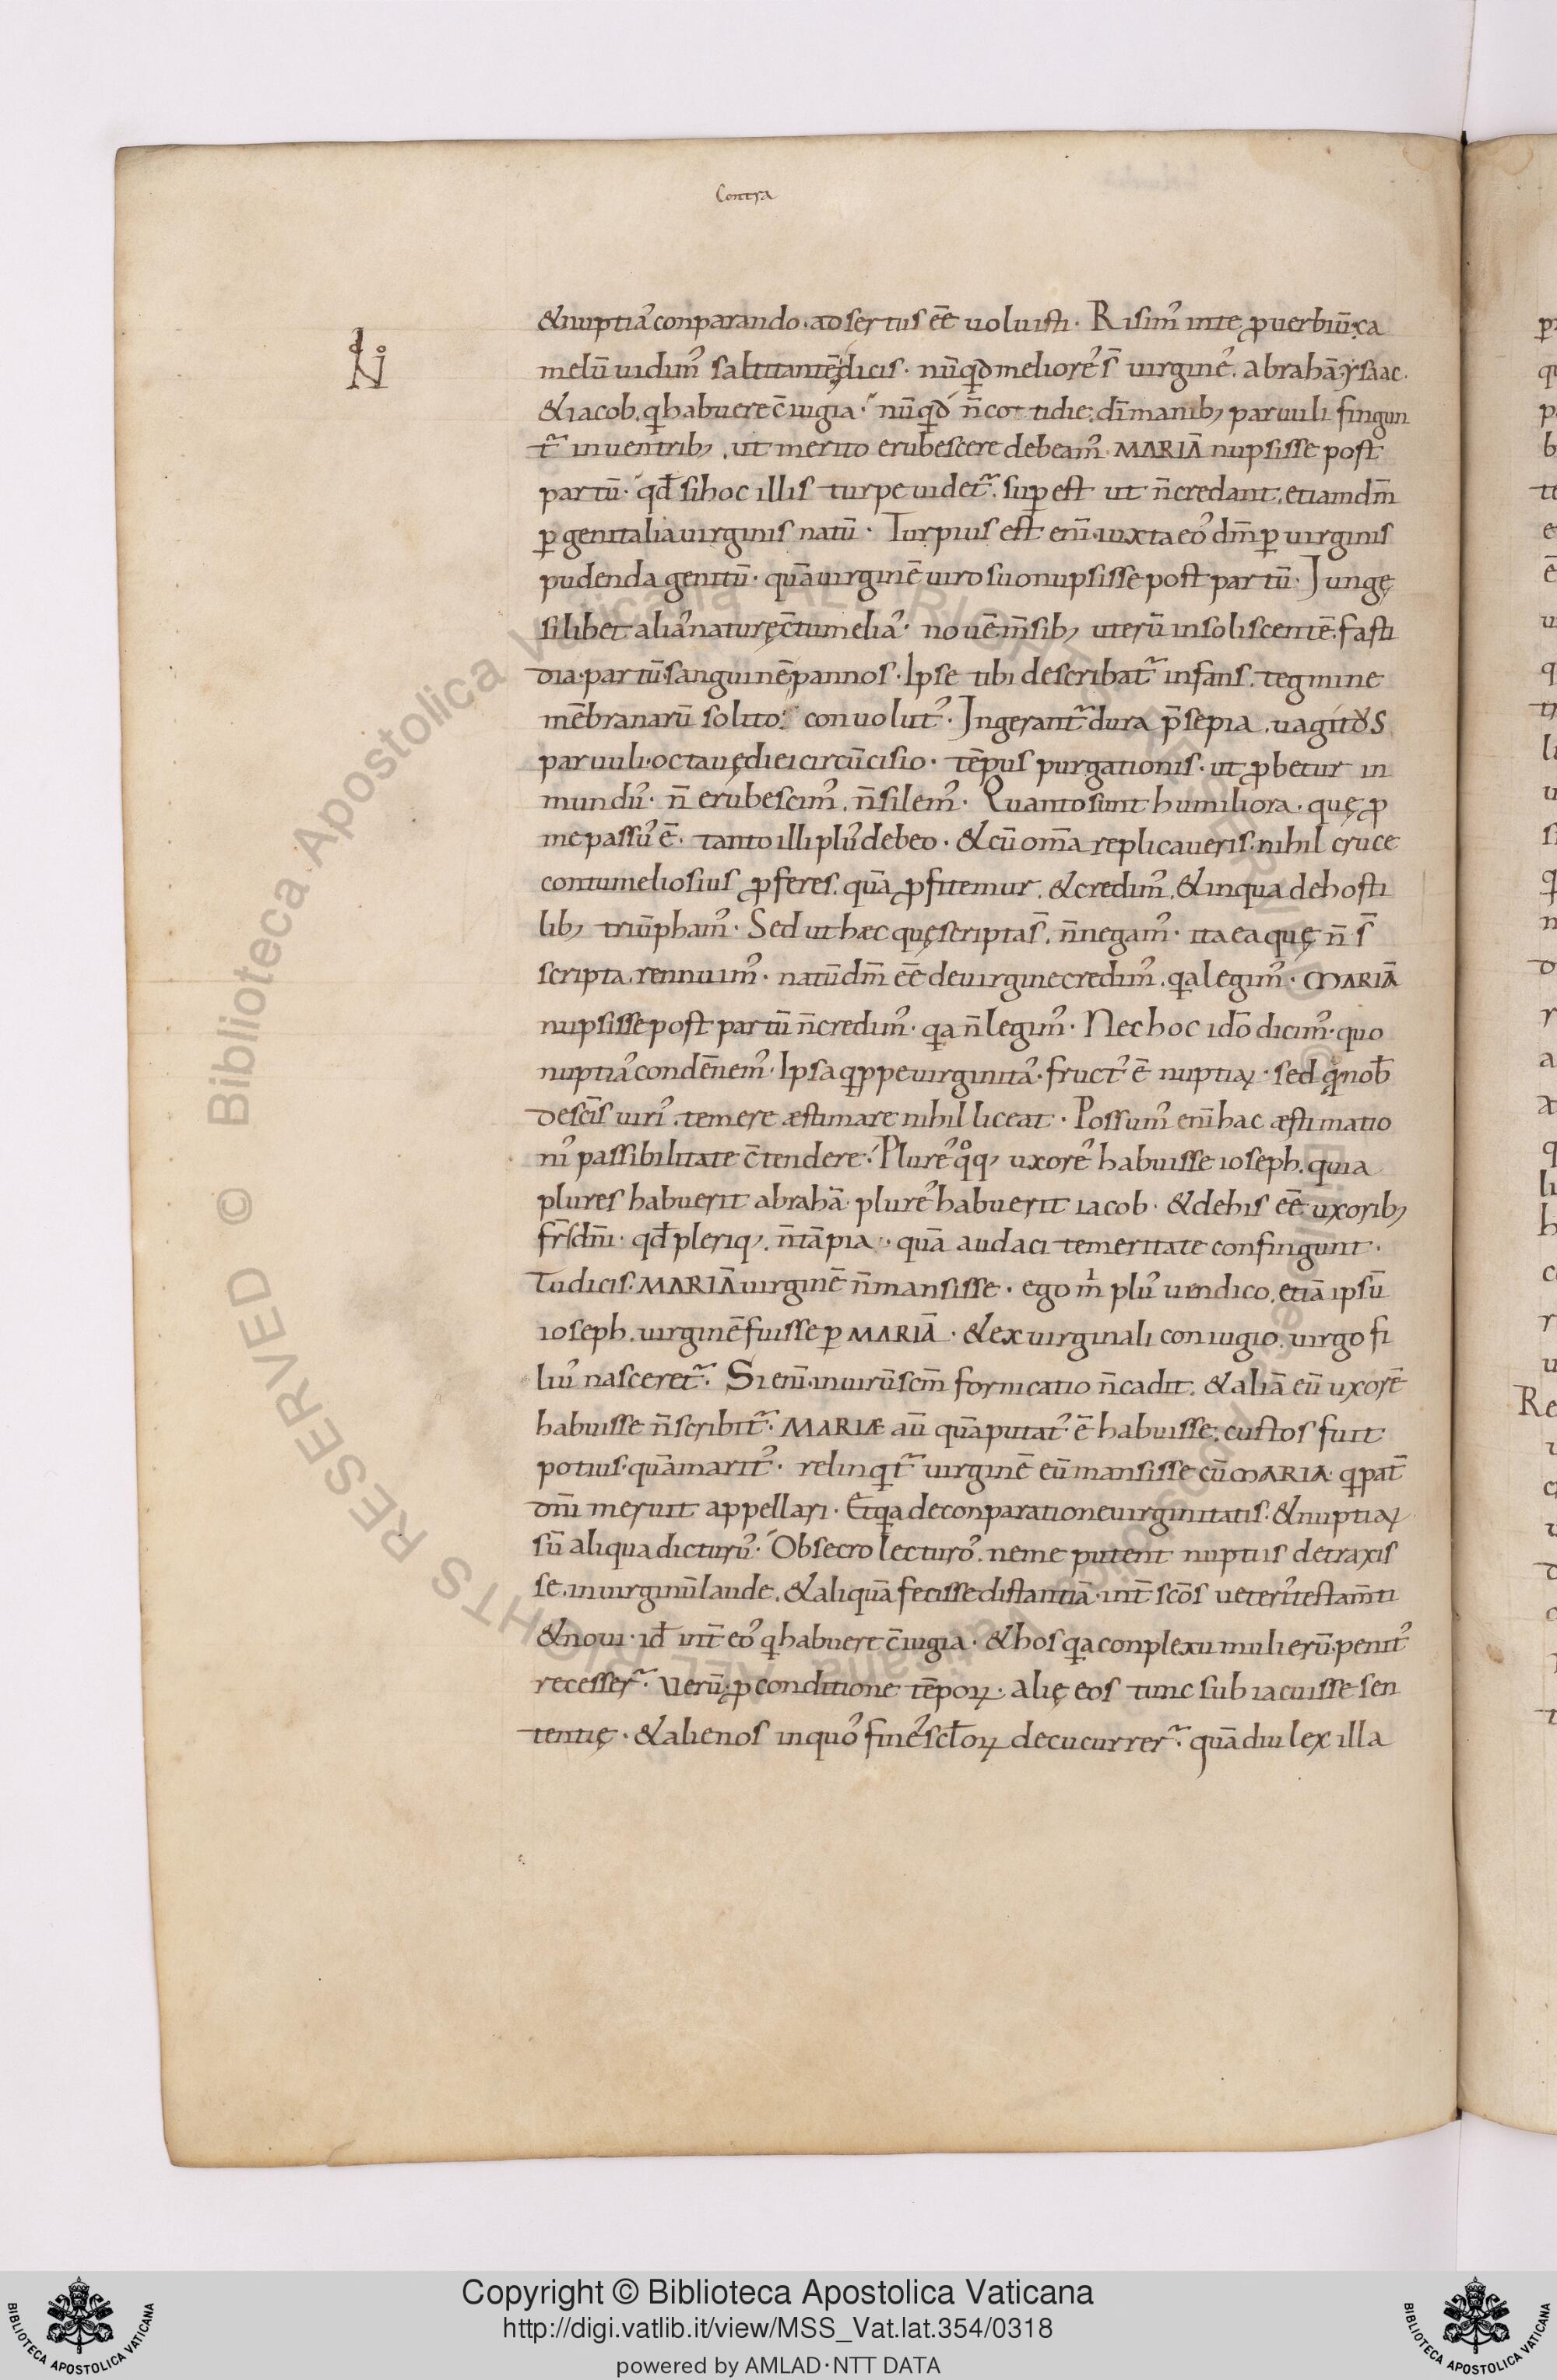 Contra
& nuptia᷒ conparando. adsertus ēē uoluisti. Risim᷒ inte ꝓuerbiū. ca
melū uidim᷒ saltitantē. dicis. nūqd meliore᷒ s̄ uirgine᷒. abrahā. ysaac.
& iacob. q habuere c̄iugia. nūqd n̄ cottidie. dī manib; paruuli fingun
t̃ inuentrib;. ut merito erubescere debeam᷒. MARIĀ nupsisse post
partū. qđ sihoc illis turpe uidet̃. suꝑest ut n̄credant. etiamdm̄
ꝑ genitalia uirginis natū. Turpius est enī. iuxta eo᷒ dm̄ ꝑ uirginis
pudenda genitū. quā uirginē uiro suo nupsisse post partū. Jungę
silibet alia᷒ naturę c̄tumelia᷒. nouē m̄sib; uterū insoliscentē. fasti
dia. partū. sanguinē. pannos. Ipse tibi describat̃ infans. tegmine
mēbranarū solito. conuolut᷒. Jngerant̃ dura p̄sepia. uagitus
paruuli. octauę diei circūcisio. tēpus purgationis. ut ꝓbetur in
mundu᷒. n̄ erubescim᷒. n̄ silem᷒. Quanto sunt humiliora. quę ꝓ
me passu᷒ ē. tanto illi plu᷒ debeo. & cū om̄a replicaueris. nihil cruce
contumeliosius ꝓferes. quā ꝓfitemur. & credim᷒. & inqua dehosti
lib; triūpham᷒. Sed ut hæc quę scripta s̄. n̄negam᷒. ita ea quę n̄ s̄
scripta. rennuim᷒. natū dm̄ ēē deuirgine credim᷒. qa legim᷒. MARIĀ
nupsisse post partū n̄credim᷒. qa n̄ legim᷒. Nec hoc idō dicim᷒. quo
nuptia᷒ condēnem᷒. Ipsa qppe uirginita᷒. fruct᷒ ē nuptiaꝝ. sed qn̄ nob̄
descīs uiri᷒. temere æstimare nihil liceat. Possum᷒ enī hac æstimatio
ni᷒ passibilitate c̄tendere. Plure᷒ qͦq; uxore᷒ habuisse ioseph. quia
plures habuerit abrahā. plure᷒ habuerit iacob. & dehis ēē uxorib;
fr̄s dn̄i. qđ pleriq;. n̄ tā pia. quā audaci temeritate confingunt.
Tu dicis. MARIĀ uirginē n̄mansisse. ego m̍ plu᷒ uendico. etiā ipsū
ioseph. uirginē fuisse ꝑ MARIĀ. & ex uirginali coniugio. uirgo fi
liu᷒ nasceret̃. Si enī. inuirū sc̄m fornicatio n̄cadit. & aliā eū uxorē
habuisse n̄ scribit̃. MARIÆ aū quā putat᷒ ē habuisse. custos fuit
potius. quā marit᷒. relinqt̃ uirginē eū mansisse cū MARIA. q pat̄
dn̄i meruit appellari. Et qa deconparatione uirginitatis. & nuptiaꝝ
sū aliqua dicturu᷒. Obsecro lecturo᷒. neme putent nuptiis detraxis
se. inuirginū laude. & aliquā fecisse distantiā. int̄ scōs ueteri᷒ testam̄ti
& noui. iđ int̄ eo᷒ q habuere c̄iugia. & hos qa conplexu mulierū. penit᷒
recesser̃. Verū. ꝓ conditione tēpoꝝ. alię eos tunc subiacuisse sen
tentię. & alienos inquo᷒ fine᷒ scl̄oꝝ decucurrer̃. quā diu lex illa
Copyright © Biblioteca Apostolica Vaticana
http://digi.vatlib.it/view/MSS_Vat.lat.354/0318
powered by AMLAD·NTT DATA
BIBLIOTECA APOSTOLICA VATICANA
BIBLIOTECA APOSTOLICA VATICANA